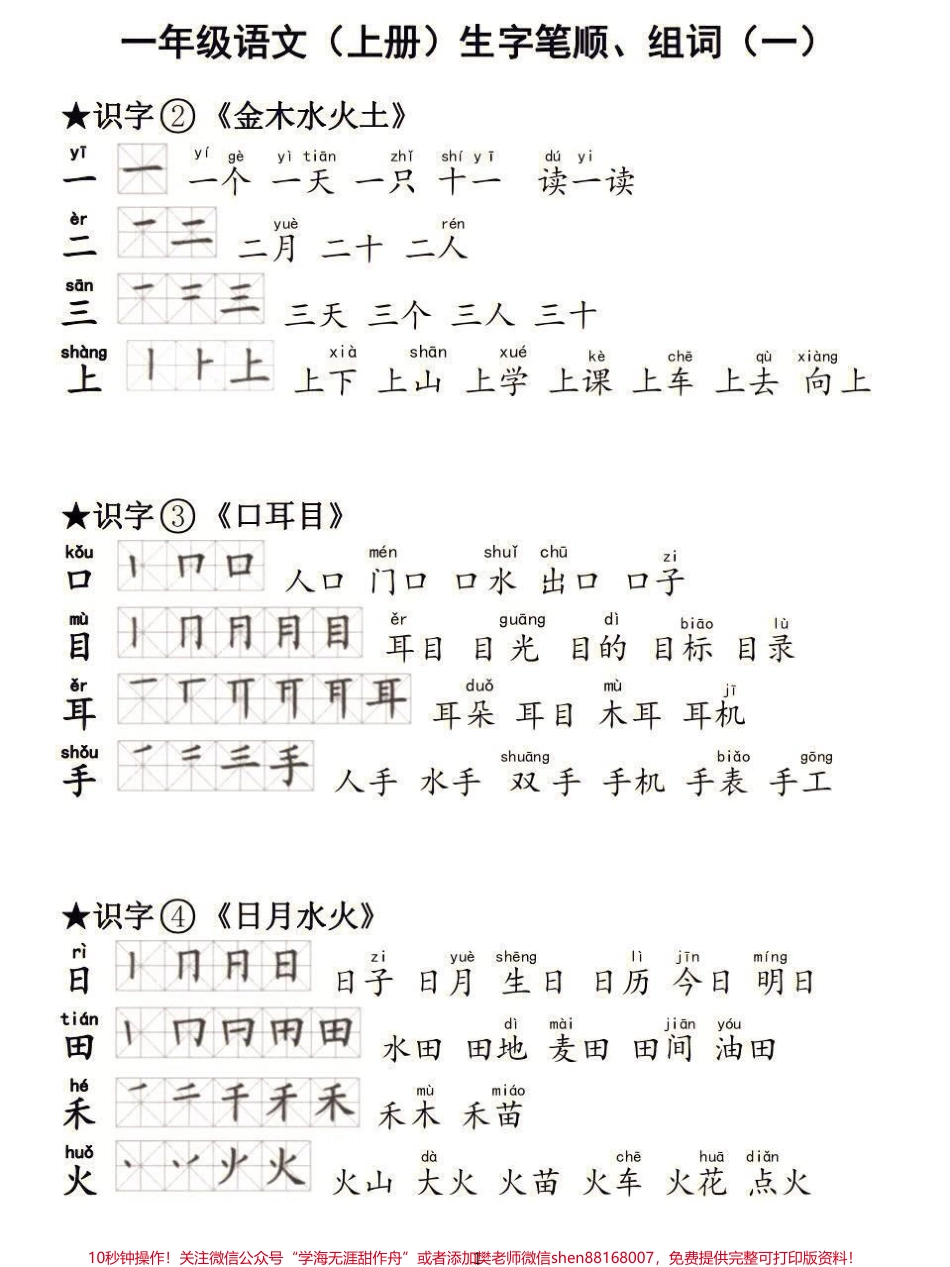 一年级语文（上册）生字笔顺、组词（一）
★识字②《金木水火土》
yī yí gè yì tiān zhǐ shí yī dú yi
一 一 一个 一天 一只 十一 读一读
èr yuè rén
二 一 二 二月 二十 二人
sān
三 一 二 三 三天 三个 三人 三十
shàng xià shān xué kè chē qù xiàng
上 丨 ⺊ 上 上下 上山 上学 上课 上车 上去 向上
★识字③《口耳目》
kǒu mén shuǐ chū zi
口 丨 冂 口 人口 门口 口水 出口 口子
mù ěr guāng dì biāo lù
目 丨 冂 月 目 耳目 目光 目的 目标 目录
ěr duǒ mù jī
耳 一 丅 耳 耳朵 耳目 木耳 耳机
shǒu shuāng biǎo gōng
手 一 二 三 手 人手 水手 双手 手机 手表 手工
★识字④《日月水火》
rì zi yuè shēng lì jīn míng
日 丨 冂 日 日 日子 日月 生日 日历 今日 明日
tián dì mài jiān yóu
田 丨 冂 日 田 田 水田 田地 麦田 田间 油田
hé mù miáo
禾 一 二 千 禾 禾 禾木 禾苗
huǒ dà chē huā diǎn
火 丶 丷 火 火 火山 大火 火苗 火车 火花 点火
10秒钟操作！关注微信公众号“学海无涯甜作舟”或者添加樊老师微信shen88168007，免费提供完整可打印版资料！